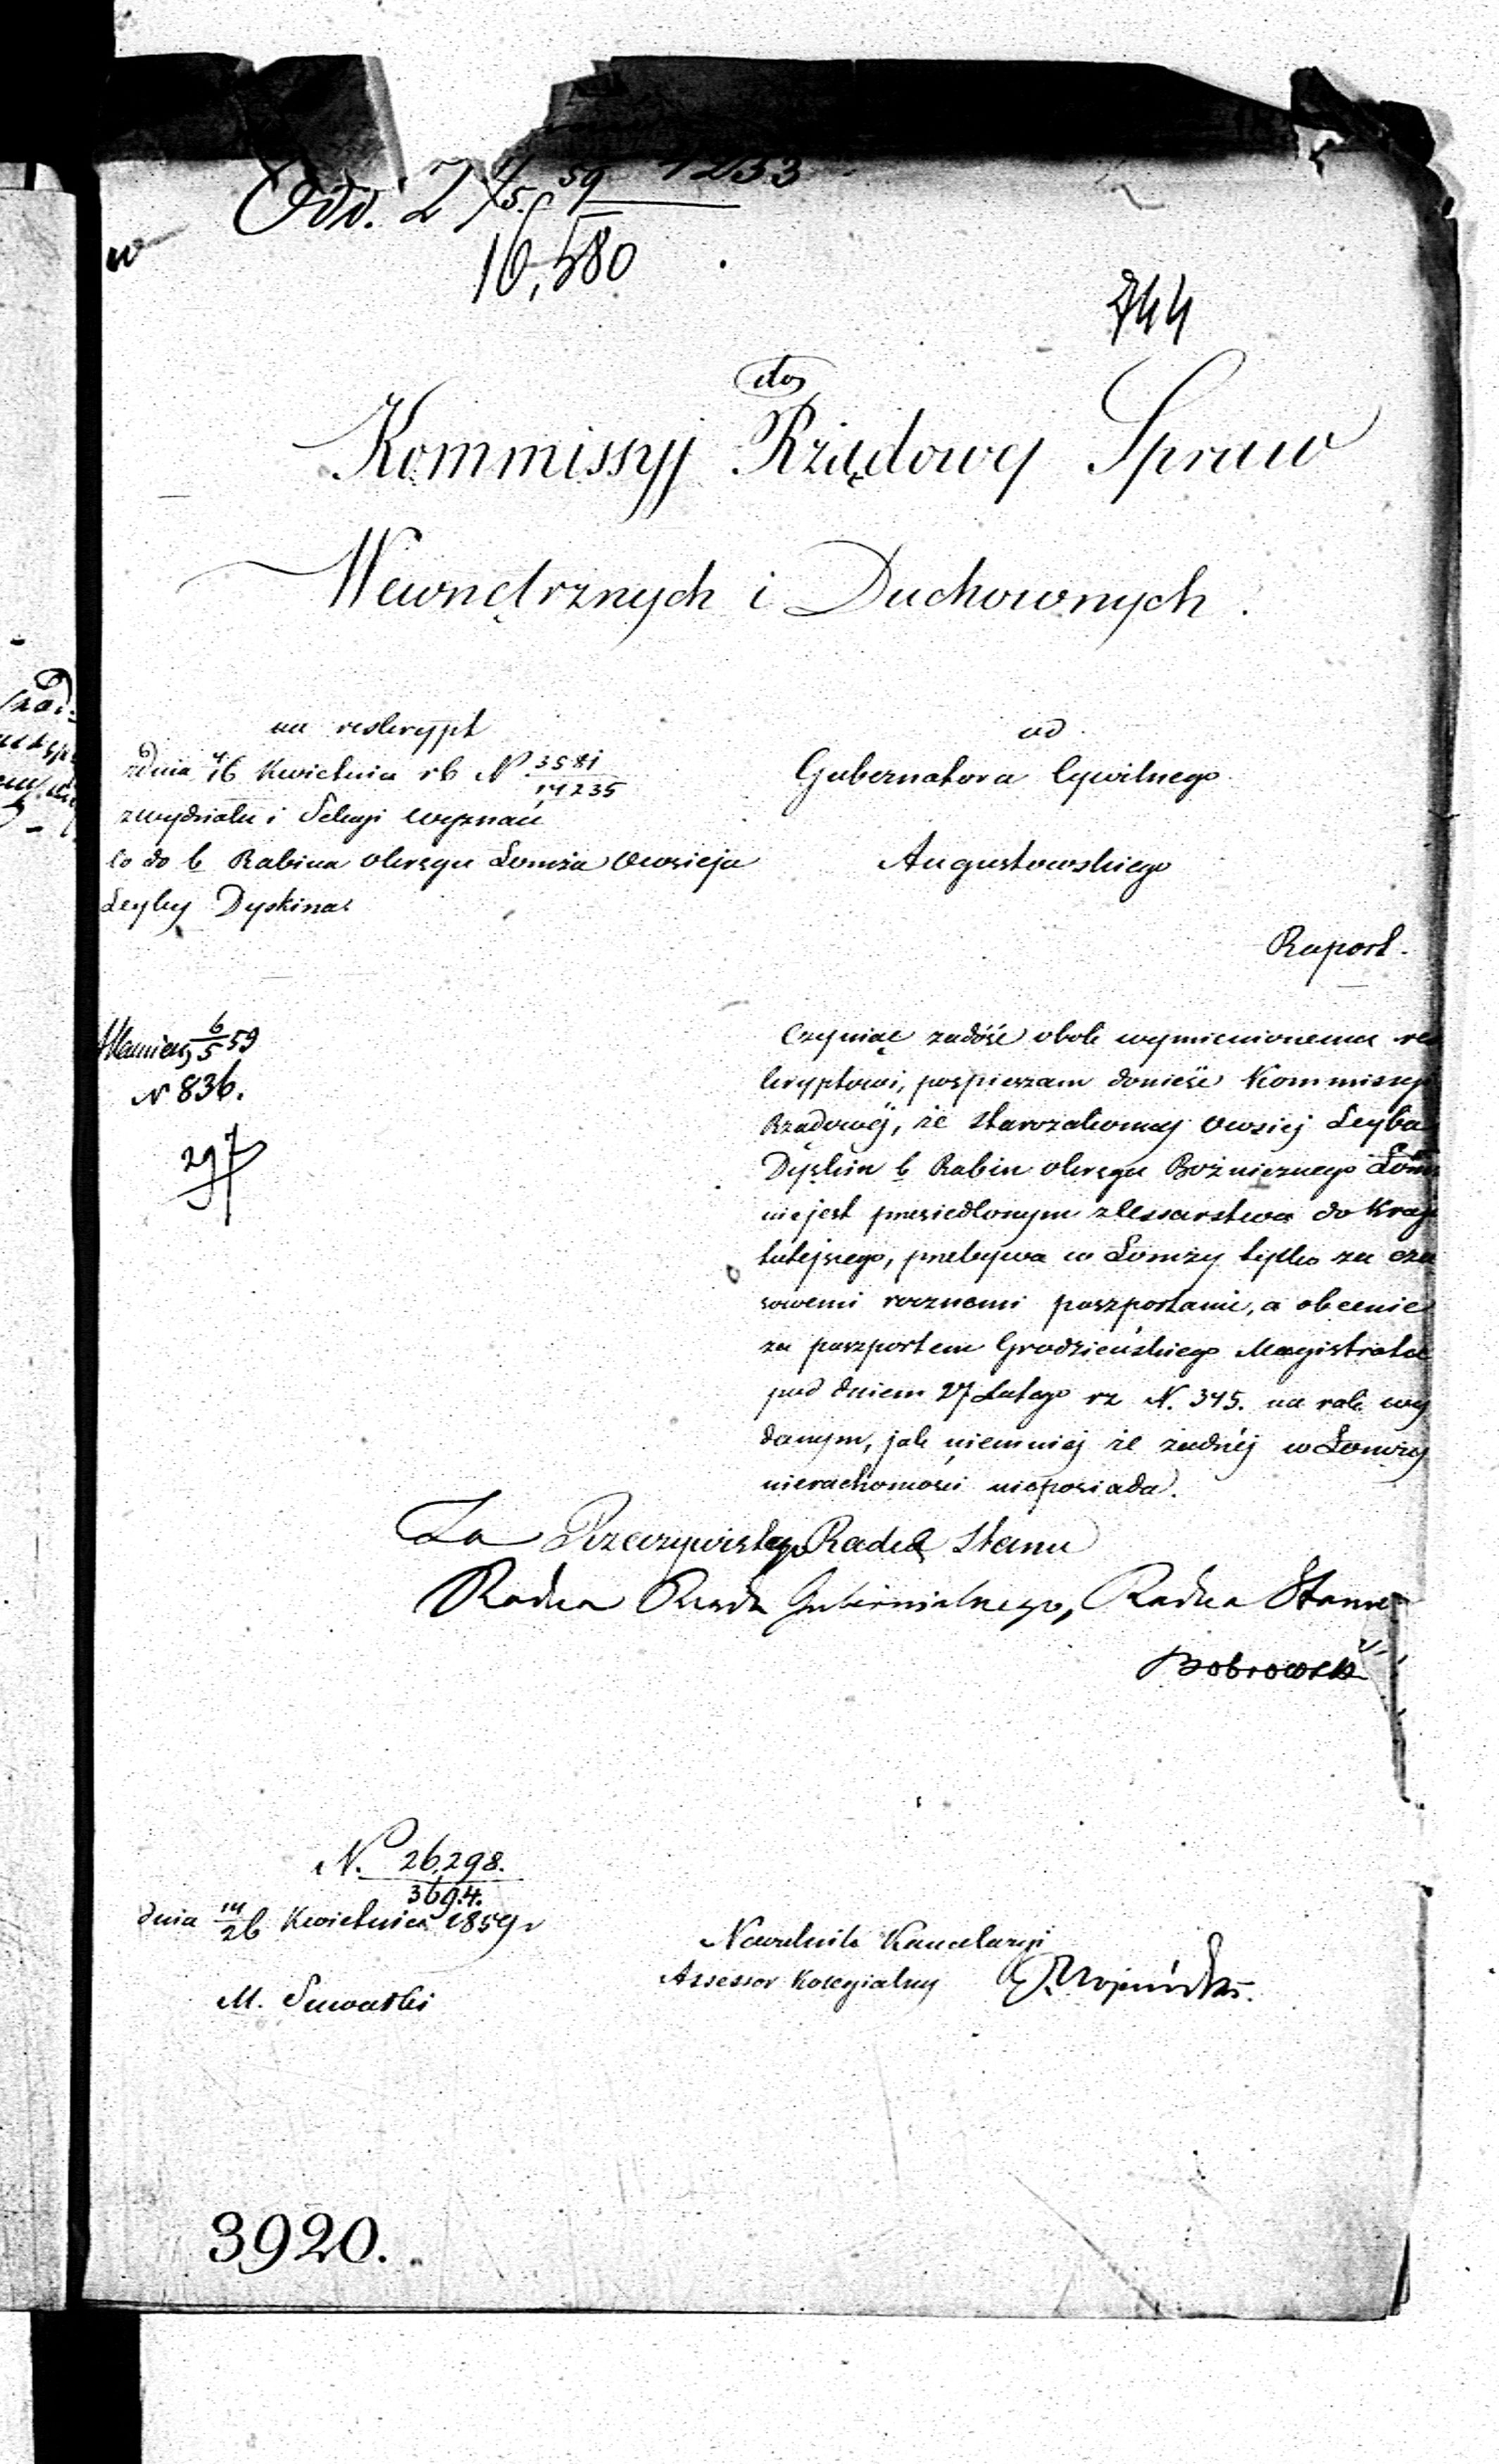 Odd. 2 4/5. 59 1233
16,580
744
do
Kommissyj Rządowej Spraw
Wewnętrznych i Duchownych.
na reskrypt
zdnia 4/16 Kwietnia rb N 3581/14235
zwydziału i Sekcyi wyznań
Co do b Rabina okręgu Łomża Owsieja
Leyby Dyskina
od
Gubernatora Cywilnego
Augustowskiego
Raport.
6/5 59
N 836.
297
Czyniąc zadość obok wymienionemu res
kryptowi, pospieszam donieść Kommissyi
Rządowéj, że starozakonny Owsiej Leyba
Dyskin b Rabin okręgu Bożniczego Łom
niejest przesiedlonym zCessarstwa do Kraju
tutejszego, przebywa w Łomży tylko za cza
sowemi rocznemi paszportami, a obecnie
za paszportem Grodzieńskiego Magistratu
pod dniem 27 Lutego rz N. 345. na rok wy
danym, jak niemniej że żadnéj w Łomży
nieruchomości nieposiada.
Za Rzeczywistego Radcę Stanu
Radca Rządu Gubernialnego, Radca Stanu
Bobrowski
N. 26,298.
3694.
dnia 14/26 Kwietnia 1859r
M. Suwałki
Naczelnik Kancelaryi
Assessor Kolegialny
3920.